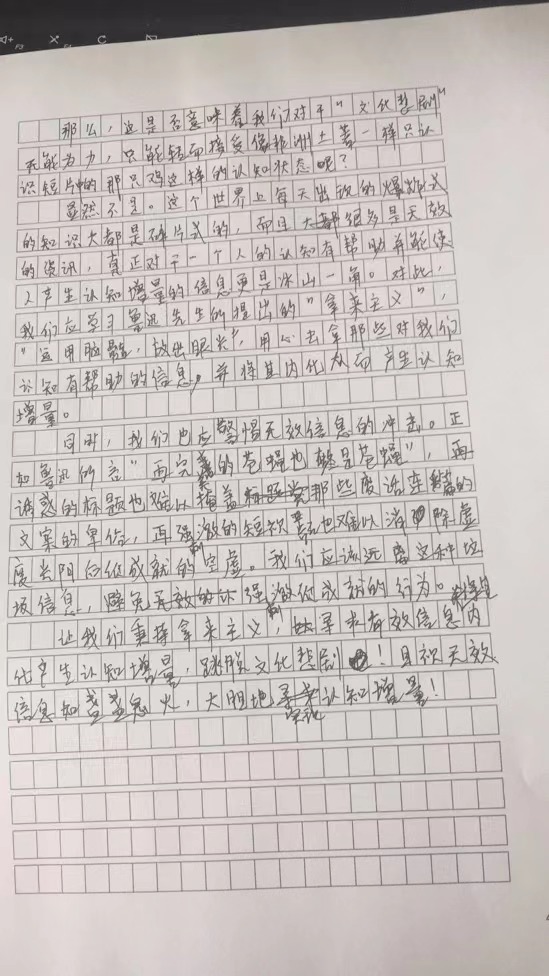 那么，这是否意味着我们对于“文化悲剧”
无能为力，只能轻而接受像非洲土著一样只认
识短片中的那只鸡这样的认知状态呢？
显然不是。这个世界上每天出放的爆炸式
的知识大都是碎片式的，而且大都很多是无效
的资讯，真正对于一个人的认知有帮助并能使
人产生认知增量的信息更是冰山一角。对此，
我们应学习鲁迅先生的提出的“拿来主义”，
“运用脑髓，放出眼光”，用心去拿那些对我们
认知有帮助的信息，并将其内化从而产生认知
增量。
同时，我们也应警惕无效信息的冲击。正
如鲁迅所言“再完美的苍蝇也终是苍蝇”，再
诱惑的标题也难以掩盖那些废话连篇的
文案的卑俗，再强刺激的短视频也难以消除虚
度光阴后的空虚。我们应该远离这种垃
圾信息，避免无效的强刺激的行为。
让我们秉持拿来主义，寻求有效信息内
化产生认知增量，跳脱文化悲剧！且视无效
信息如盏盏鬼火，大胆地实现认知增量！